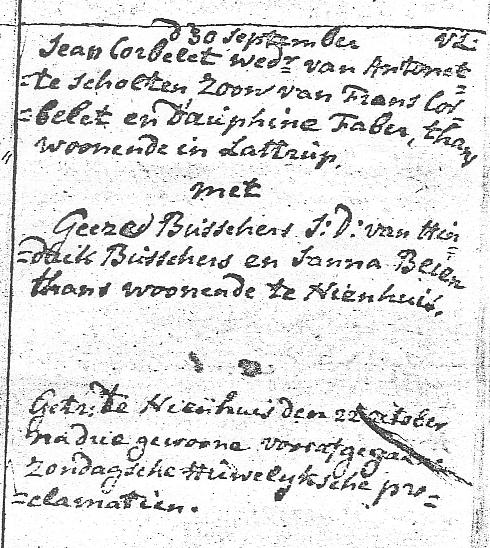 d 30 September
Jean Corbelet wedr. van Antonet-
=te Scholten Zoon van Frans Cor-
=belet en Dauphine Faber, thans
woonende in Lattrup,
met
Geere Busschers J: D: van Hin-
=drik Busschers en Janna Beien
thans woonende te Nienhuis.
Getr: te Nienhuis den 22 october
na drie gewoone vooraf
Zondagsche Huwelyksche pro-
=clamatien.